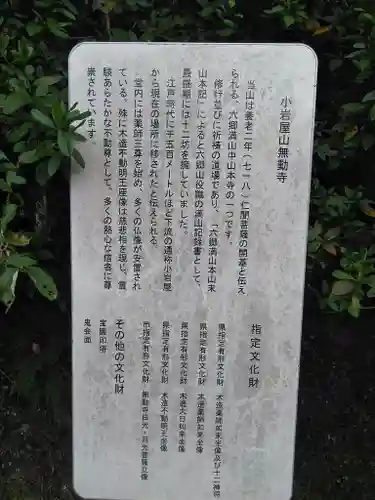 小岩屋山無動寺
当山は養老二年（七一八）仁聞菩薩の開基と伝え
られる、六郷満山中山本寺の一つです。
修行並びに祈祷の道場であり、「六郷満山本山末
山本記」によると六郷山役職の満山記録書として、
最盛期には十二坊を擁していました。
江戸時代に千五百メートルほど下流の通称小岩屋
から現在の場所に移されたと伝えられる。
堂内には薬師三尊を始め、多くの仏像が安置され
ている。殊に木造不動明王座像は慈悲相を現じ、霊
験あらたかな不動尊として、多くの熱心な信者に尊
崇されています。
指定文化財
県指定有形文化財　木造薬師如来坐像及び十二神将
県指定有形文化財　木造薬師如来坐像
県指定有形文化財　木造大日如来坐像
県指定有形文化財　木造不動明王坐像
市指定有形文化財　無動寺日光・月光菩薩立像
その他の文化財
宝篋印塔
鬼会面